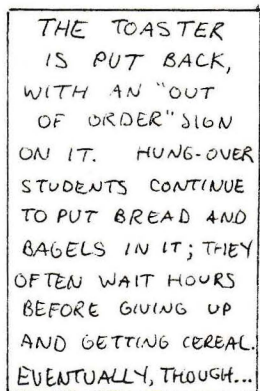 THE TOASTER
IS PUT BACK,
WITH AN "OUT
OF ORDER" SIGN
ON IT. HUNG-OVER
STUDENTS CONTINUE
TO PUT BREAD AND
BAGELS IN IT; THEY
OFTEN WAIT HOURS
BEFORE GIVING UP
AND GETTING CEREAL.
EVENTUALLY, THOUGH...